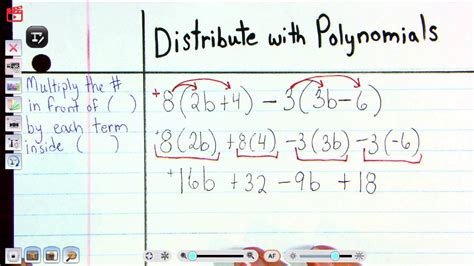 Distribute with Polynomials
Multiply the #
in front of ( )
by each term
inside ( )
+8(2b+4) -3(3b-6)
+8(2b) +8(4) -3(3b) -3(-6)
+16b +32 -9b +18
AF